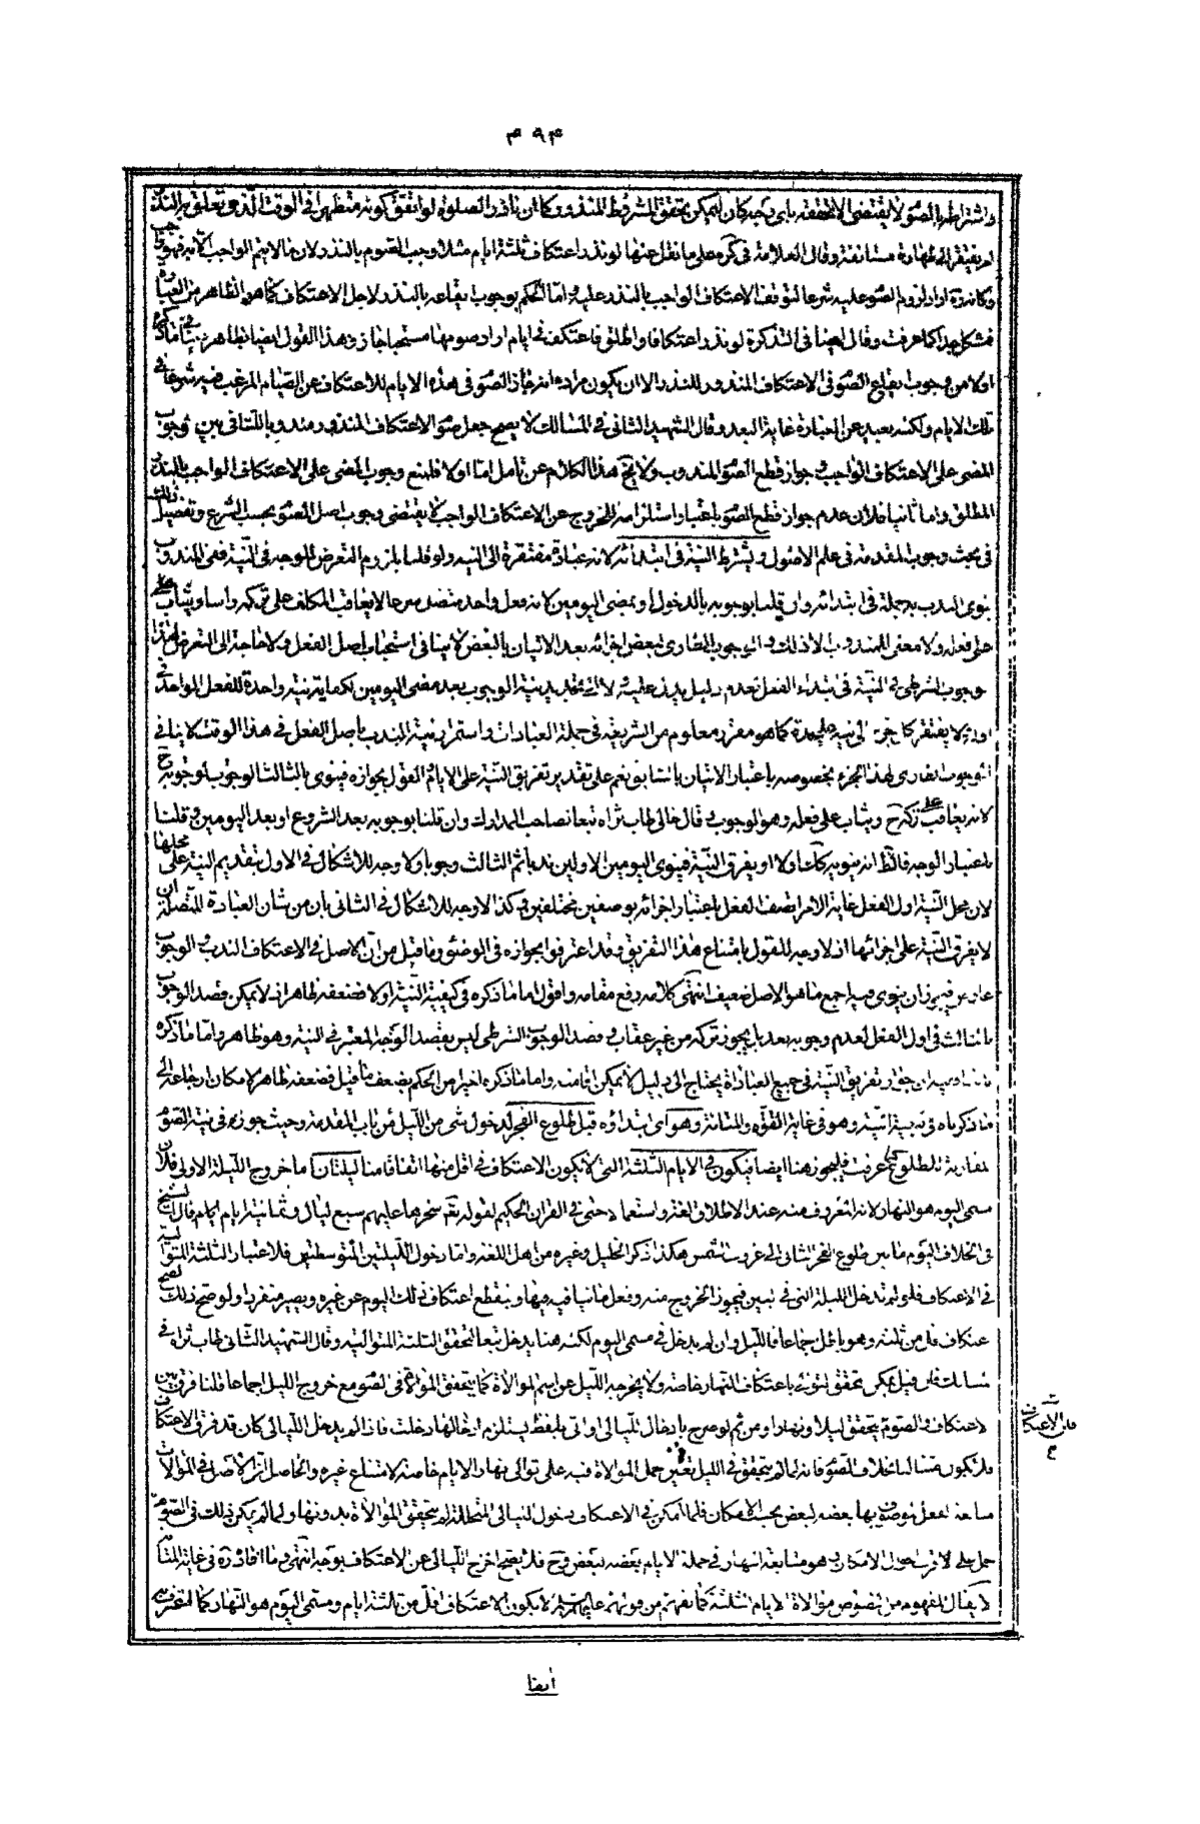 ۳۹۴
واشتراطه بالصوم لا يقتضى الا تحققه باى وجه كان ليمكن تحقق المشروط المنذور وكان ناذر الصلوة لو اتفق كونه متطهرا فى الوقت الذى تعلق به النذر
لم يفتقر الى طهارة مستانفة وقال العلامة فى كره على ما نقل عنها لو نذر اعتكاف ثلثة ايام مثلا وجب الصوم بالنذر لان ما لا يتم الواجب الا به فهو واجب
وكانه اراد لزوم الصوم عليه شرعا لتوقف الاعتكاف الواجب بالنذر عليه واما الحكم بوجوب ايقاعه بالنذر لاجل الاعتكاف كما هو الظاهر من العبارة
فمشكل جدا كما عرفت وقال ايضا فى التذكرة لو نذر اعتكافا واطلق فاعتكف فى ايام اراد صومها مستحبا جاز وهذا القول ايضا بظاهره ينافى ما ذكره
اولا من وجوب ايقاع الصوم فى الاعتكاف المنذور للنذر الا ان يكون مراده انه جاز الصوم فى هذه الايام للاعتكاف عن الصيام المرغب فيه شرعا فى
تلك الايام ولكنه بعيد عن العبارة غاية البعد وقال الشهيد الثانى فى المسالك لا يصح جعل صوم الاعتكاف المنذور مندوبا للتنافى بين وجوب
المضى على الاعتكاف الواجب وجواز قطع الصوم المندوب ولا يخ هذا الكلام عن تامل اما اولا فلمنع وجوب المضى على الاعتكاف الواجب بالنذر
المطلق واما ثانيا فلان عدم جواز قطع الصوم باعتبار استلزامه للخروج عن الاعتكاف الواجب لا يقتضى وجوب اصل الصوم بحسب الشرع وتفصيل ذلك
فى بحث وجوب المقدمة فى علم الاصول ويشترط النية فى ابتدائه لانه عبادة مفتقرة الى النية ولو قلنا بلزوم التعرض للوجه فى النية ففى المندوب
ينوى الندب بجملة فى ابتدائه وان قلنا بوجوبه بالدخول او بمضى اليومين لانه فعل واحد متصل شرعا لا يعاقب المكلف على تركه راسا ويثاب
على فعله ولا معنى للمندوب الا ذلك والوجوب الطارى لبعض اجزائه بعد الاتيان بالبعض لا ينافى استحباب اصل الفعل ولا حاجة الى التعرض لهذا
الوجوب الشرطى فى النية فى ابتداء الفعل لعدم دليل يدل عليه ولا الى تجديد نية الوجوب بعد مضى اليومين لكفاية نية واحدة للفعل الواحد فى
اوله ولا يفتقر كل جزء الى نية عليحدة كما هو مقرر معلوم من الشريعة فى جملة العبادات واستمرار نية الندب باصل الفعل فى هذا الوقت لا ينافى
الوجوب الطارى لهذا الجزء بخصوصه باعتبار الاتيان بالسابق نعم على تقدير تفريق النية على الايام القول بجوازه فينوى بالثالث الوجوب لوجوبه ح
لانه يعاقب على تركه ح ويثاب على فعله وهو الوجوب وقال خالى طاب ثراه تبعا لصاحب المدارك وان قلنا بوجوبه بعد الشروع او بعد اليومين وقلنا
باعتبار الوجه فالظ انه ينويه كك اولا او يفرق النية فينوى اليومين الاولين ندبا ثم الثالث وجوبا ولا وجه للاشكال فى الاول بتقديم النية على محلها
لان محل النية اول الفعل غاية الامر اتصف الفعل باعتبار اجزائه بوصفين مختلفين وكذا لا وجه للاشكال فى الثانى بان من شان العبادة المتصلة ان
لا يفرق النية على اجزائها اذ لا وجه للقول بامتناع هذا التفريق وقد اعترفوا بجوازه فى الوضوء وما قيل من ان الاصل فى الاعتكاف الندب والوجوب
عارض فيه فيجوز ان ينوى فيه اجمع ما هو الاصل ضعيف انتهى كلامه رفع مقامه واقول اما ما ذكره فى كيفية النية اولا فضعفه ظاهر اذ لا يمكن قصد الوجوب
بالثالث فى اول الفعل لعدم وجوبه بعد بل يجوز تركه من غير عقاب وقصد الوجوب الشرطى ليس بقصد الوجه المعتبر فى النية وهو ظاهر واما ما ذكره
ثانيا من جواز تفريق النية فى جميع العبادة يحتاج الى دليل لا يمكن اقامته واما ما ذكره اخيرا من الحكم بضعف ما قيل فضعفه ظاهر لامكان ارجاعه الى
ما ذكرناه فى توجيه النية وهو فى غاية القوة والمتانة وهو اى ابتداؤه قبل طلوع الفجر لدخول شئ من الليل من باب المقدمة وحيث جوزه فى نية الصوم
مقارنة الطلوع كما عرفت فليجوز هنا ايضا فيكون فى الايام الثلثة التى لا يكون الاعتكاف فى اقل منها اتفاقا منا ليلتان اما خروج الليلة الاولى فلان
مسمى اليوم هو النهار لانه المعروف منه عند الاطلاق لغة واستعمالا حتى فى القران الحكيم لقوله تع سخرها عليهم سبع ليال وثمانية ايام قال الشيخ
فى الخلاف اليوم ما بين طلوع الفجر الثانى الى غروب الشمس هكذا ذكر الخليل وغيره من اهل اللغة واما دخول الليلتين المتوسطتين فلاعتبار الثلثة المتوالية
فى الاعتكاف فلو لم تدخل الليلة التى فى البين فيجوز الخروج منه وفعل ما ينافيه فيها وينقطع اعتكاف ذلك اليوم عن غيره ويصير منفردا ولو صح ذلك لصح
اعتكاف اقل من ثلثة وهو باطل اجماعا فالليل وان لم يدخل فى مسمى اليوم لكنه هنا يدخل تبعا لتحقق الثلثة المتوالية وقال الشهيد الثانى طاب ثراه فى
المسالك فان قيل يمكن تحقق التوالى باعتكاف النهار خاصة ولا يخرجه الليل عن اسم الموالاة كما يتحقق الموالاة فى الصوم مع خروج الليل اجماعا قلنا فرق بين
الاعتكاف والصوم يتحقق ليلا ونهارا ومن ثم لو صرح بادخال الليالى او اتى بلفظ يستلزم ادخالها دخلت فاذا لم يدخل الليالى كان قد فرق الاعتكاف
فان الاعتكاف
فلا يكون متتاليا بخلاف الصوم فانه لما لم يتحقق فى الليل تعين حمل الموالاة فيه على توالى نهار الايام خاصة لامتناع غيره والحاصل ان الاصل فى الموالاة
متابعة الفعل الموصوف بها بعضه لبعض بحسب الامكان فلما امكن فى الاعتكاف دخول الليالى المتخللة لم يتحقق الموالاة بدونها ولما لم يكن ذلك فى الصوم
حمل على الاقرب الى الامكان وهو متابعة النهار فى جملة الايام بعضه لبعض وح فلا يصح اخراج الليالى عن الاعتكاف بوجه انتهى وما افاده فى غاية المتانة
لا يقال المفهوم من النصوص موالاة الايام الثلثة كما يفهم من قولهم عليهم السلام لا يكون الاعتكاف اقل من ثلثة ايام ومسمى اليوم هو النهار كما اعترف به
ايضا